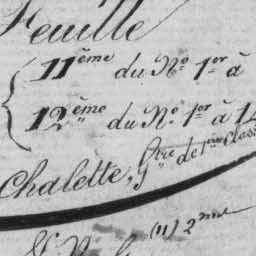 Feuille
11ème du No. 1er à
12ème du No. 1er à 14
Chalette, Gtre de 1ere Class
(11) 2me